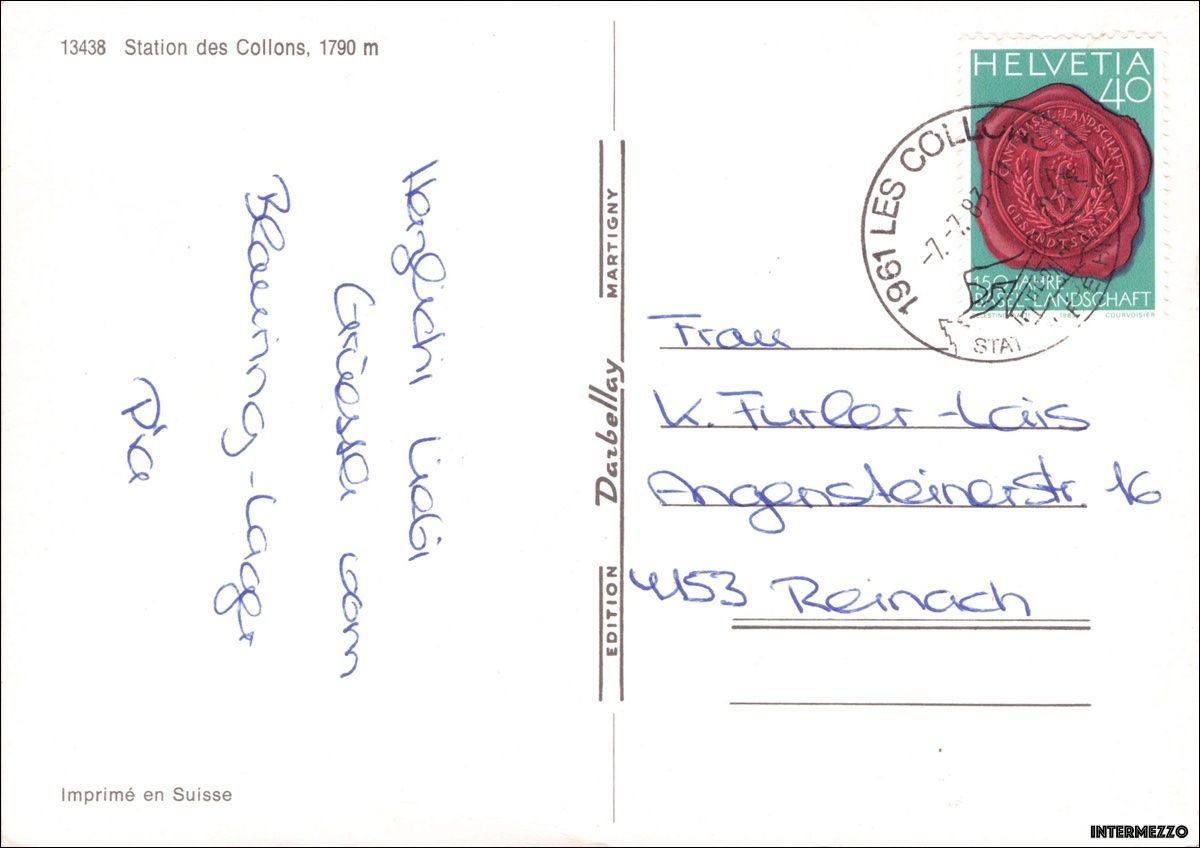 13438 Station des Collons, 1790 m
Herzlichi liebi
Grüessli vom
Blauring-Lager
Pia
Imprimé en Suisse
EDITION Darbellay MARTIGNY
HELVETIA
40
BASEL-LANDSCHAFT
GESANDTSCHAFT
150 JAHRE
BASEL-LANDSCHAFT
COURVOISIER
1961 LES COLLONS
-7.-7.83
STAT
Frau
K. Furler-Lais
Angensteinerstr. 16
4153 Reinach
INTERMEZZO